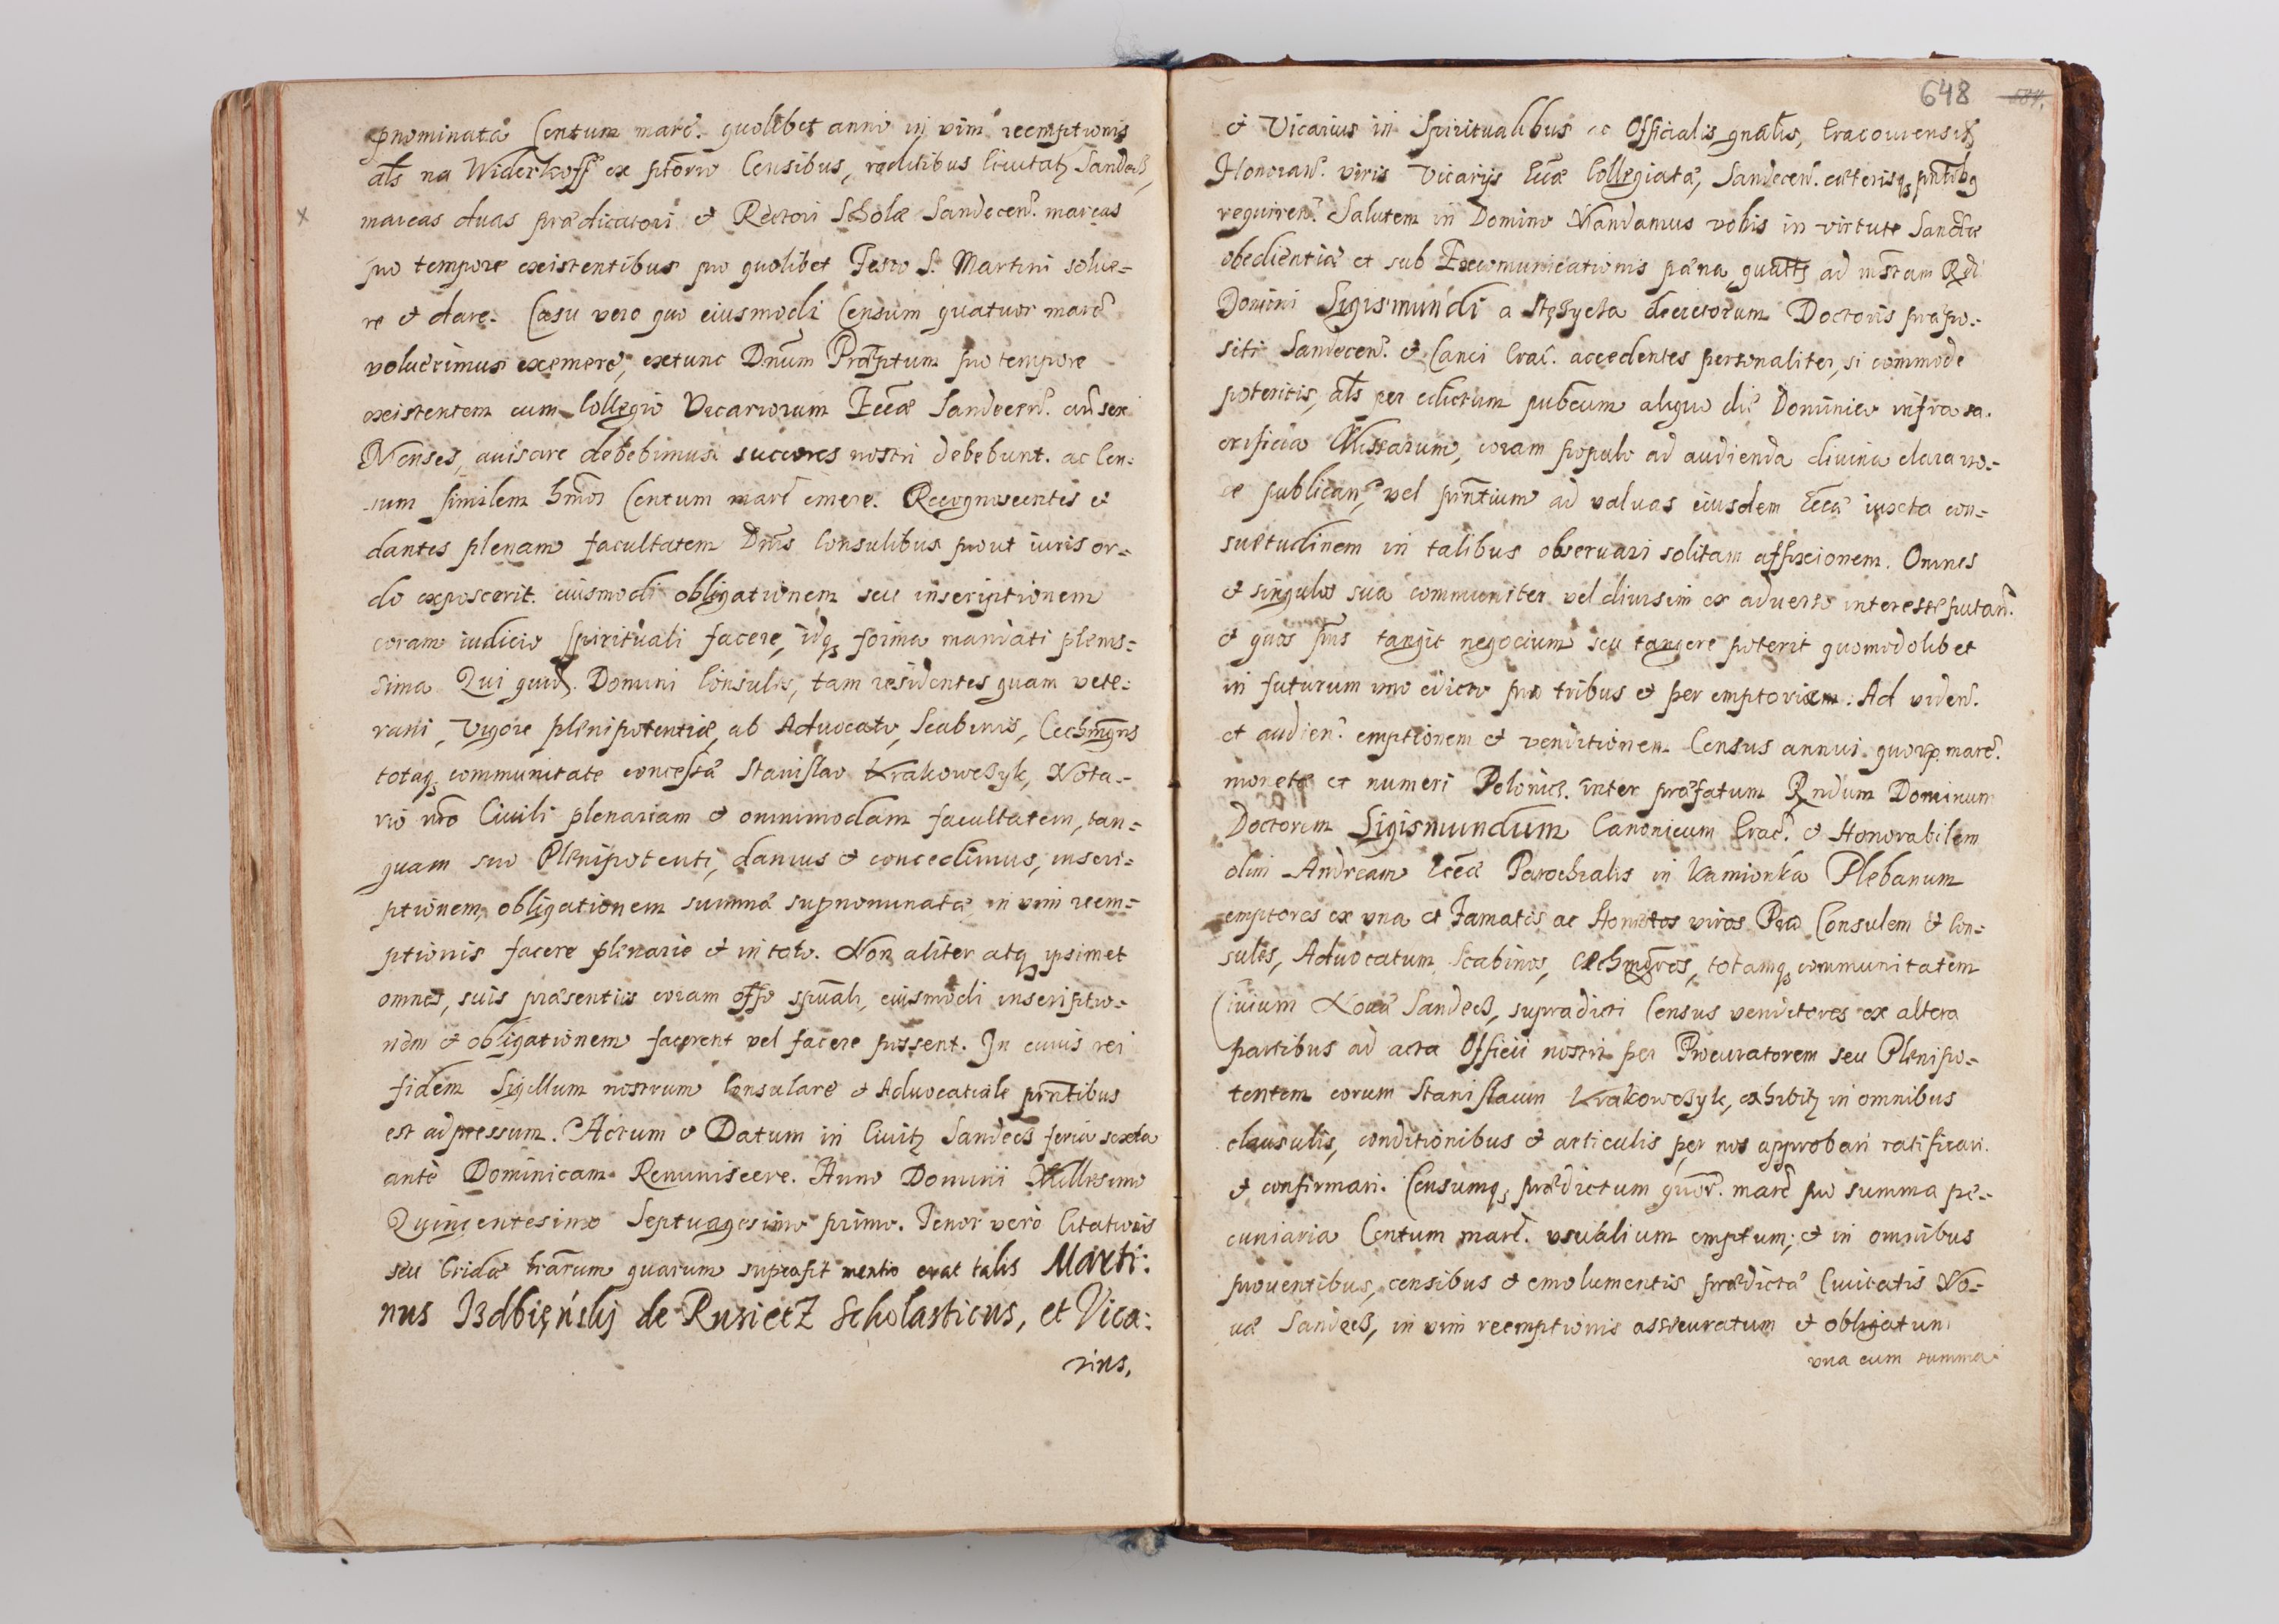 pnominatæ Centum marc. quolibet anno in vim reemptionis
als na Widerkoff ex ptorio Censibus, reditibus Civitatz Sandecz,
marcas duas prædicatori et Rectori Scholæ Sandecen. marcas
pro tempore existentibus pro quolibet Festo S. Martini solve-
re et dare. Casu vero quo eiusmodi Censum quatuor marc
voluerimus exemere, extunc Dnum Præptum pro tempore
existentem cum Collegio Vicariorum Eccæ Sandecen. an sex
Menses, avisare debebimus succores nostri debebunt. ac Cen-
sum similem hmoi Centum marc emere. Recognoscentes et
dantes plenam facultatem Dnis Consulibus prout iuris or-
do exposcerit. eiusmodi obligationem seu inscriptionem
coram iudicio spirituali facere, idq forma mandati plenis-
sima Qui quid. Domini Consules, tam residentes quam vete-
rani, Vigore plenipotentiæ, ab Advocato, Scabinis, Cechmgris
totaq communitate concessæ Stanislao Krakowczyk, Nota-
rio nro Civili plenariam et omnimodam facultatem, tan-
quam suo Plenipotenti, damus et concedimus, inscri-
ptionem, obligationem summæ supnominatæ in vim reem-
ptionis facere plenarie et in toto. Non aliter atq ipsimet
omnes, suis præsentiis coram offo spuali, eiusmodi inscriptio-
nem et obligationem facerent vel facere possent. In cuius rei
fidem Sigillum nostrum Consulare et Advocatiale pntibus
est adpressum. Actum et Datum in Civitz Sandecz feria sexta
ante Dominicam Reminiscere. Anno Domini Millesimo
Quingentesimo Septuagesimo primo. Tenor vero Citationis
seu Cridæ lrarum quarum supra fit mentio erat talis Marti:
nus Izdbięński de Rusiecz Scholasticus, et Vica:
rius,
648
584.
et Vicarius in Spiritualibus ac Officialis gnalis, Cracoviensis,
Honoran. viris Vicarijs Eccæ Collegiatæ, Sandecen. cæterisq, pntibg
requiren. Salutem in Domino Mandamus vobis in virtute Sanctæ
obedientiæ et sub Excomunicationis pæna, quatts ad instam Rdi
Domini Sigismundi a Stęszycza decretorum Doctoris præpo-
siti Sandecen. et Canci Crac. accedentes personaliter, si commode
poteritis, als per edictum pubcum aliquo die Dominico infra sa-
crificia Missarum, coram populo ad audienda divina clara vo-
ce publican, vel pntium ad valvas eiusdem Eccæ iuxta con-
suetudinem in talibus observari solitam affixionem. Omnes
et singulos sua communiter vel divisim ex adverso interesse putan.
et quos pns tangit negocium seu tangere poterit quomodolibet
in futurum uno edicto pro tribus et peremptoriæm. Ad viden.
et audien. emptionem et venditionem Census annui quor marc.
monetæ et numeri Polonicz. inter præfatum Rndum Dominum
Doctorem Sigismundum Canonicum Crac. et Honorabilem
olim Andream Eccæ Parochialis in Kamionka Plebanum
emptores ex una et Famatos ac Honestos viros Pro Consulem et Con-
sules, Advocatum Scabinos, Cechmgros, totamq communitatem
Civium Novæ Sandecz, supradicti Census venditores ex altera
partibus ad acta Officii nostri per Procuratorem seu Plenipo-
tentem eorum Stanislaum Krakowczyk, exhibitz in omnibus
clausulis, conditionibus et articulis per nos approbari ratificari
et confirmari. Censumq, prædictum quor. marc pro summa pe-
cuniaria Centum marc. usualium emptum, et in omnibus
proventibus, censibus et emolumentis prædictæ Civitatis No-
væ Sandecz, in vim reemptionis assecuratum et obligatum
una cum summa